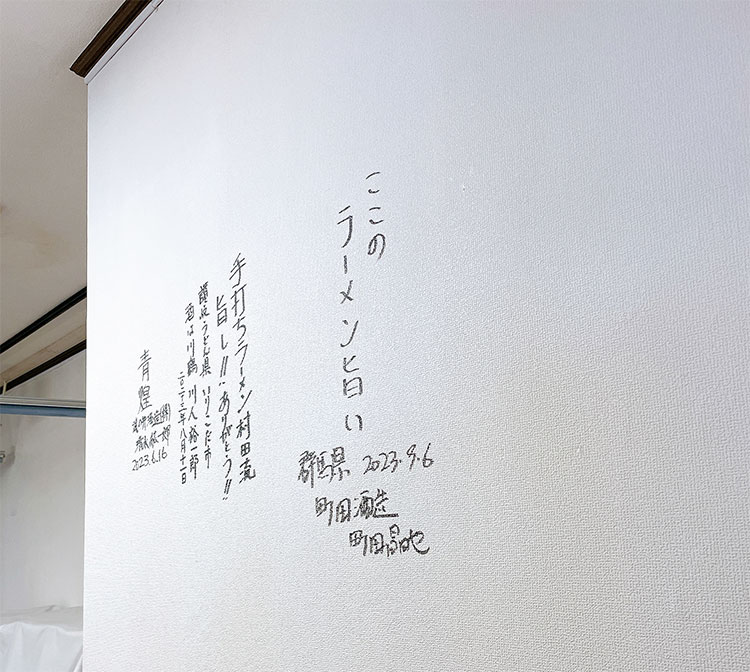 ここの
ラーメン旨い
群馬県 2023.9.6
町田酒造
町田晶也
手打ちラーメン村田流
旨し!!ありがとう!!
讃岐うどん県 いりこだ市
酒は川鶴 川人裕一郎
二〇二三年八月十一日
青煌
2023.6.16